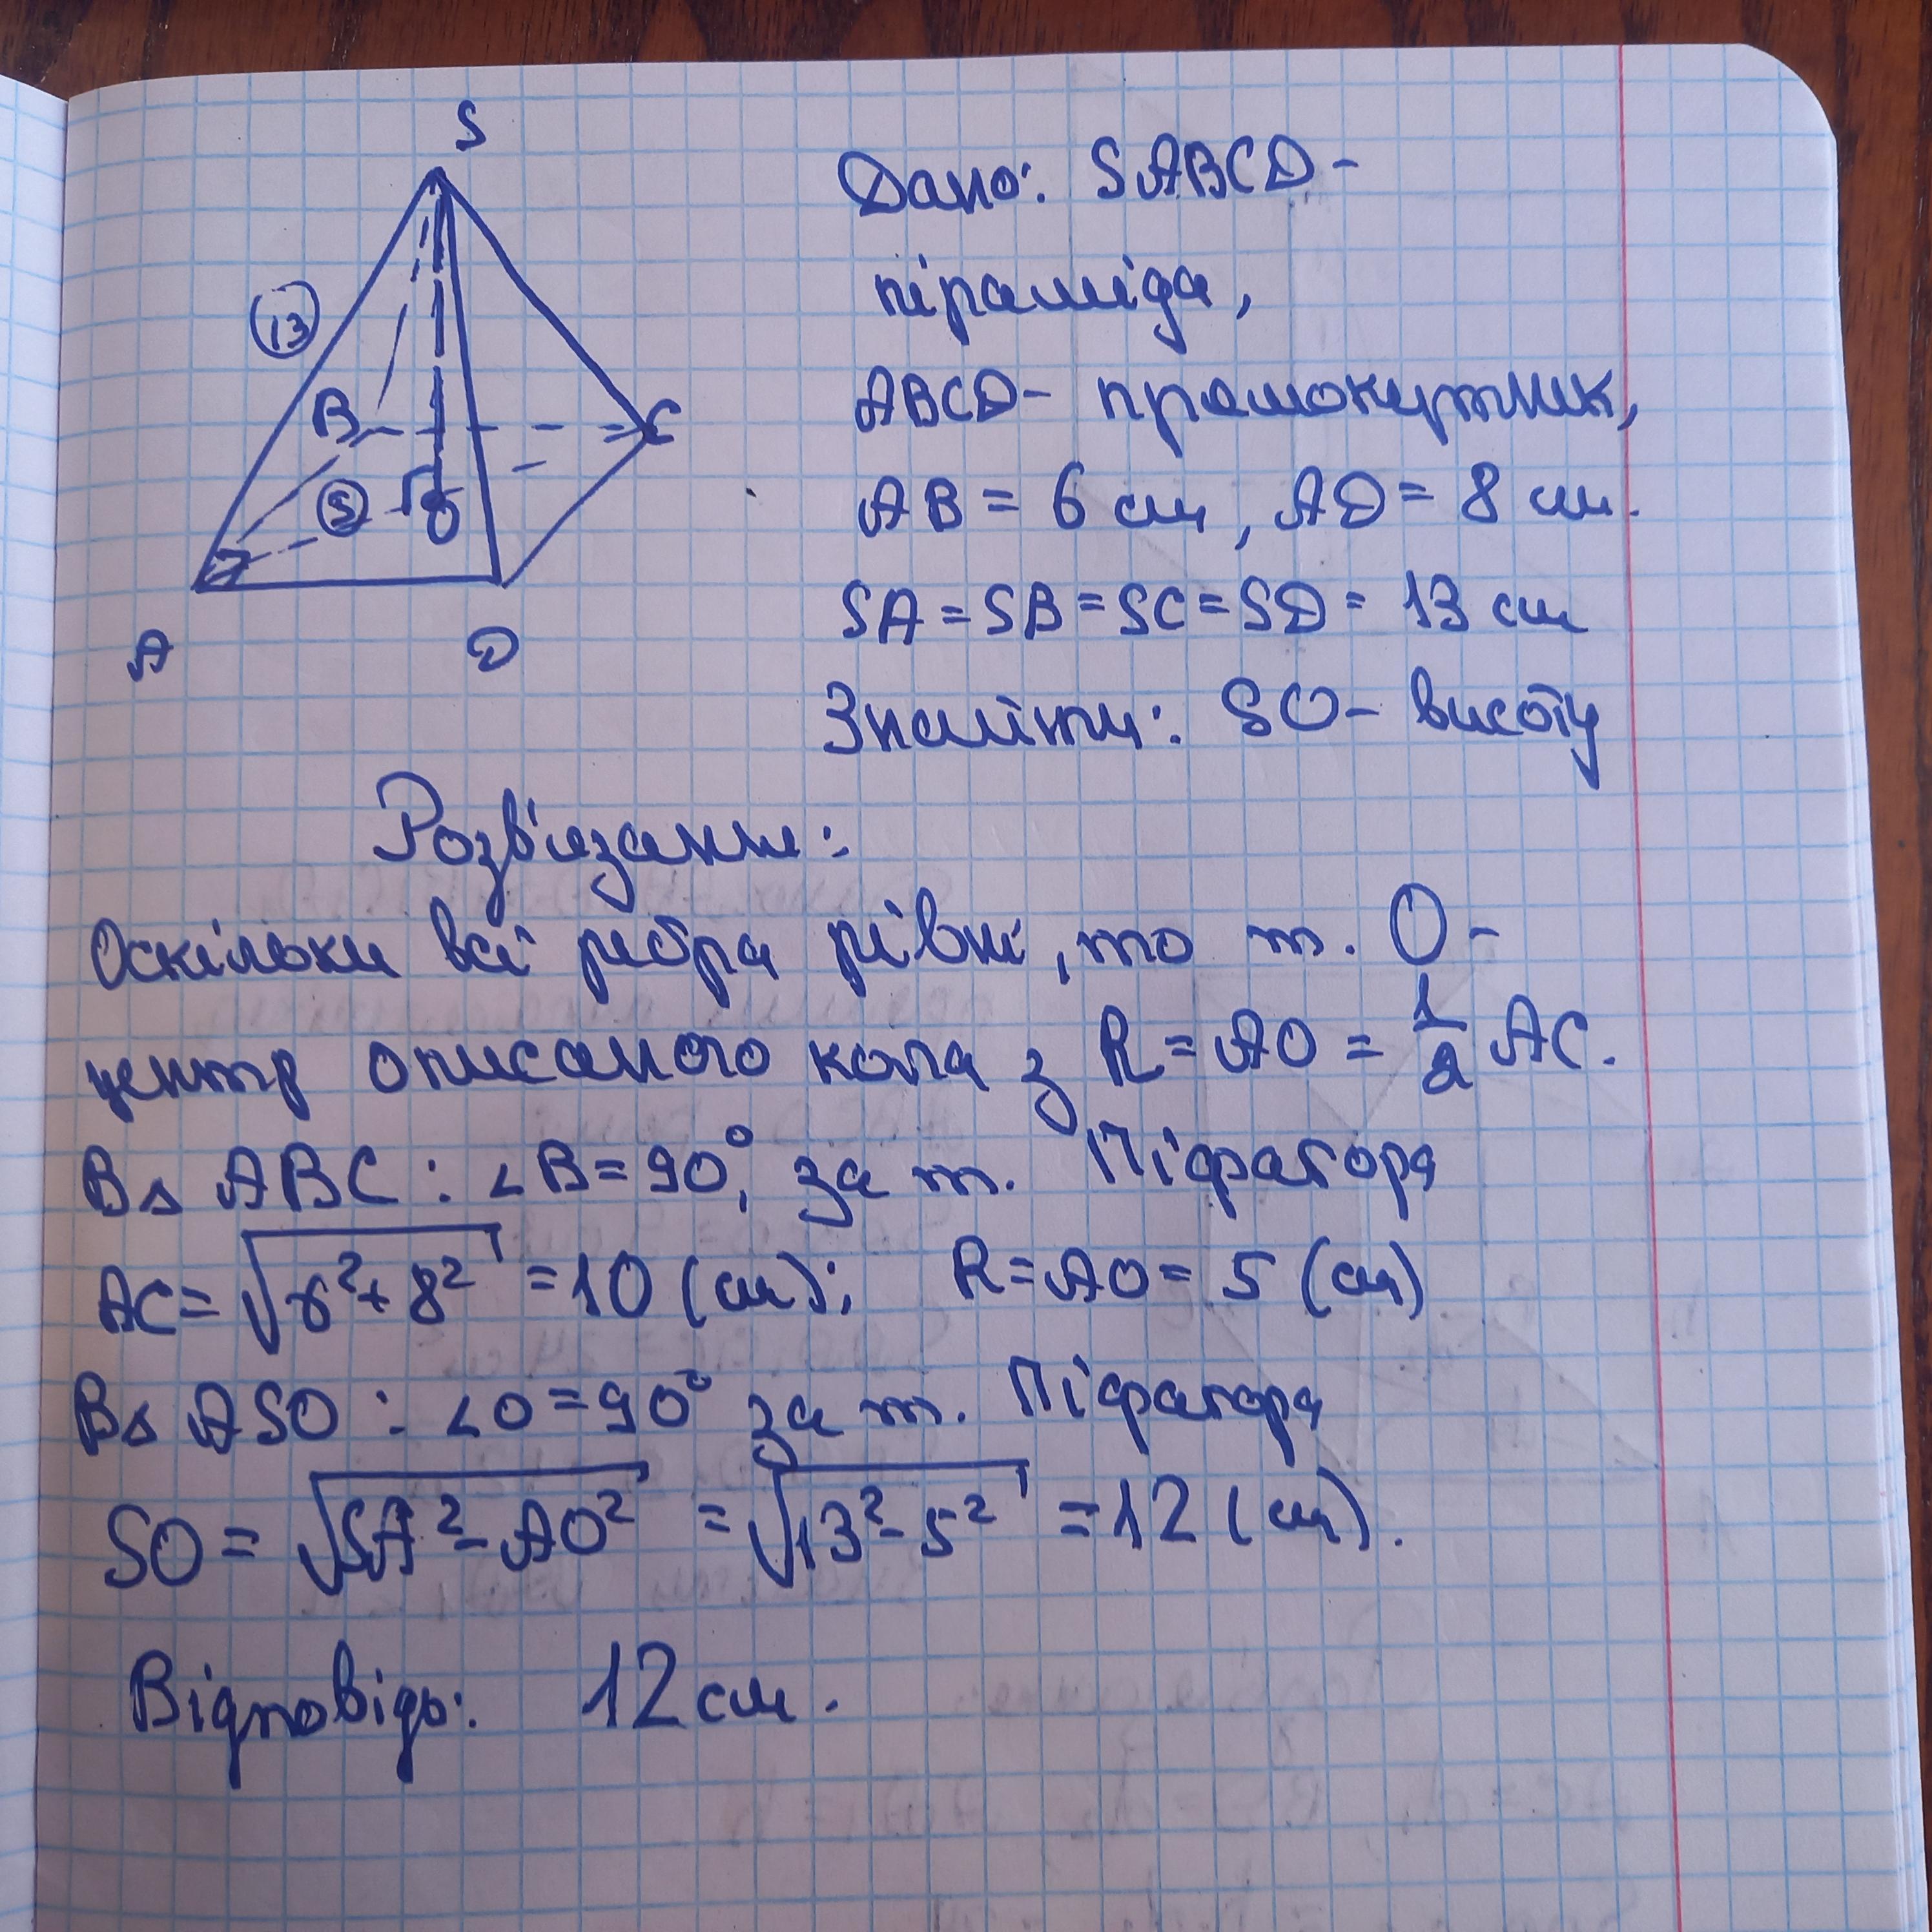 S
13
B
C
5
O
A
D
Дано: SABCD-
піраміда,
ABCD- прямокутник,
AB = 6 см, AD = 8 см.
SA = SB = SC = SD = 13 см
Знайти: SO- висоту
Розв'язання:
Оскільки всі ребра рівні, то т. O-
центр описаного кола з R = AO = 1/2 AC.
В △ ABC : ∠B = 90°, за т. Піфагора
AC = √6²+8² = 10 (см); R = AO = 5 (см)
В △ ASO : ∠O = 90° за т. Піфагора
SO = √SA² - AO² = √13² - 5² = 12 (см).
Відповідь: 12 см.